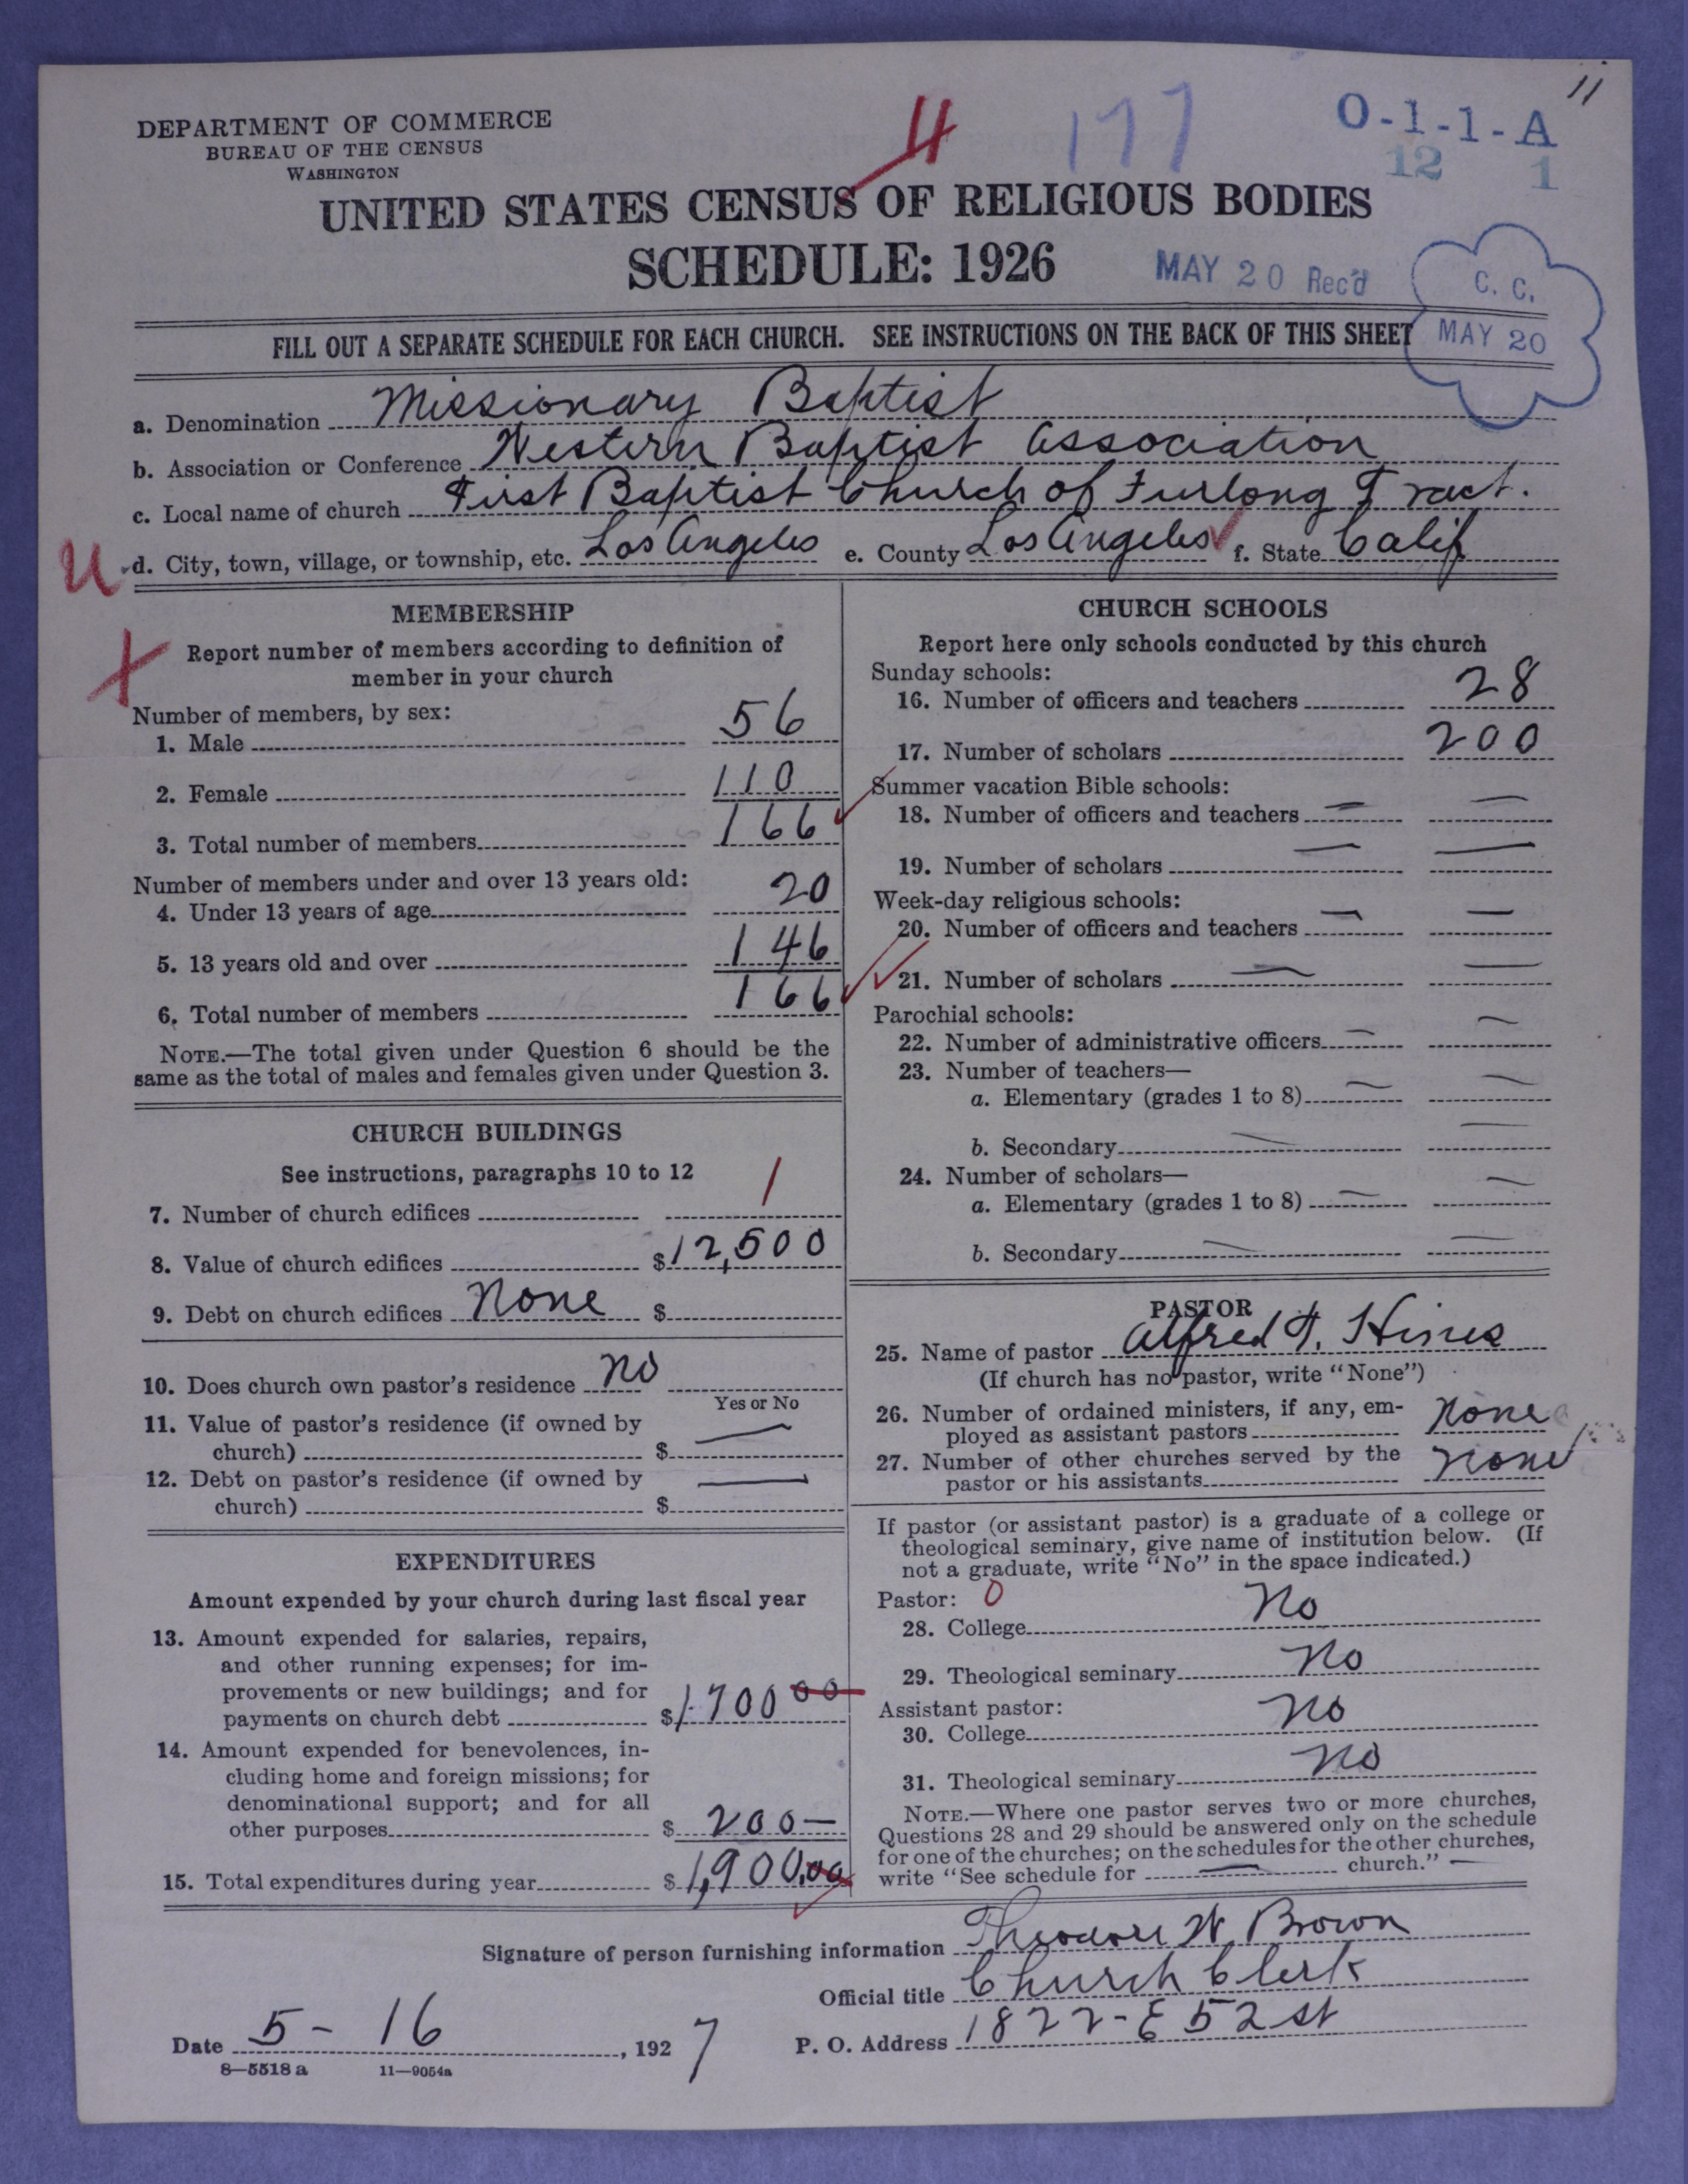 11
DEPARTMENT OF COMMERCE
BUREAU OF THE CENSUS
WASHINGTON
177
O-1-1-A
12 1
UNITED STATES CENSUS OF RELIGIOUS BODIES
SCHEDULE: 1926
MAY 20 Rec'd
C. C.
MAY 20
FILL OUT A SEPARATE SCHEDULE FOR EACH CHURCH. SEE INSTRUCTIONS ON THE BACK OF THIS SHEET
a. Denomination Missionary Baptist
b. Association or Conference Western Baptist Association
c. Local name of church First Baptist Church of Furlong Tract.
d. City, town, village, or township, etc. Los Angeles e. County Los Angeles f. State Calif
MEMBERSHIP
Report number of members according to definition of
member in your church
Number of members, by sex:
1. Male 56
2. Female 110
3. Total number of members 166
Number of members under and over 13 years old:
4. Under 13 years of age 20
5. 13 years old and over 146
6. Total number of members 166
NOTE.—The total given under Question 6 should be the
same as the total of males and females given under Question 3.
CHURCH BUILDINGS
See instructions, paragraphs 10 to 12
7. Number of church edifices 1
8. Value of church edifices $12,500
9. Debt on church edifices None $
10. Does church own pastor's residence no
Yes or No
11. Value of pastor's residence (if owned by
church) $ —
12. Debt on pastor's residence (if owned by
church) $ —
EXPENDITURES
Amount expended by your church during last fiscal year
13. Amount expended for salaries, repairs,
and other running expenses; for im-
provements or new buildings; and for
payments on church debt $1700 00
14. Amount expended for benevolences, in-
cluding home and foreign missions; for
denominational support; and for all
other purposes $ 200—
15. Total expenditures during year $1,900.00
CHURCH SCHOOLS
Report here only schools conducted by this church
Sunday schools:
16. Number of officers and teachers 28
17. Number of scholars 200
Summer vacation Bible schools:
18. Number of officers and teachers — —
19. Number of scholars — —
Week-day religious schools:
20. Number of officers and teachers — —
21. Number of scholars — —
Parochial schools:
22. Number of administrative officers — —
23. Number of teachers—
a. Elementary (grades 1 to 8) — —
b. Secondary — —
24. Number of scholars—
a. Elementary (grades 1 to 8) — —
b. Secondary — —
PASTOR
25. Name of pastor Alfred T. Hines
(If church has no pastor, write "None")
26. Number of ordained ministers, if any, em-
ployed as assistant pastors None
27. Number of other churches served by the
pastor or his assistants None
If pastor (or assistant pastor) is a graduate of a college or
theological seminary, give name of institution below. (If
not a graduate, write "No" in the space indicated.)
Pastor: 0
28. College No
29. Theological seminary No
Assistant pastor:
30. College No
31. Theological seminary No
NOTE.—Where one pastor serves two or more churches,
Questions 28 and 29 should be answered only on the schedule
for one of the churches; on the schedules for the other churches,
write "See schedule for — church." —
Signature of person furnishing information Theodore W. Brown
Official title Church Clerk
Date 5-16, 1927 P. O. Address 1822-E 52 st
8—5518 a 11—9054a